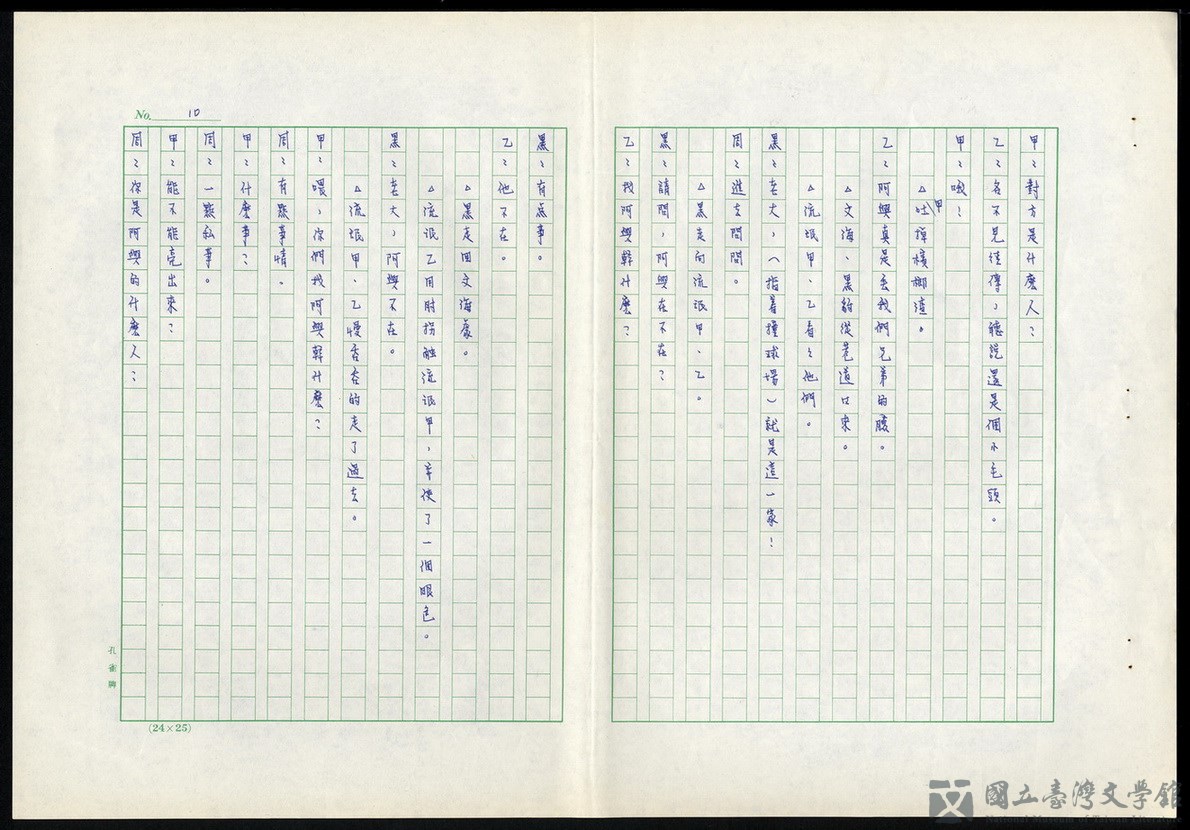 甲：對方是什麼人？
乙：名不見經傳，聽說還是個小毛頭。
甲：哦！
△甲吐掉檳榔渣。
乙：阿興真是丟我們兄弟的臉。
△文海、黑給從巷道口來。
△流氓甲、乙看看他們。
黑：老大，（指着撞球場）就是這一家！
周：進去問問。
△黑走向流氓甲、乙。
黑：請問，阿興在不在？
乙：找阿興幹什麼？
黑：有点事。
乙：他不在。
△黑走回文海處。
△流氓乙用肘拐触流氓甲，並使了一個眼色。
黑：老大，阿興不在。
△流氓甲、乙慢吞吞的走了過去。
甲：喂，你們找阿興幹什麼？
周：有點事情。
甲：什麼事？
周：一點私事。
甲：能不能亮出來？
周：你是阿興的什麼人？
No. 10
孔雀牌
(24×25)
國立臺灣文學館
National Museum of Taiwan Literature